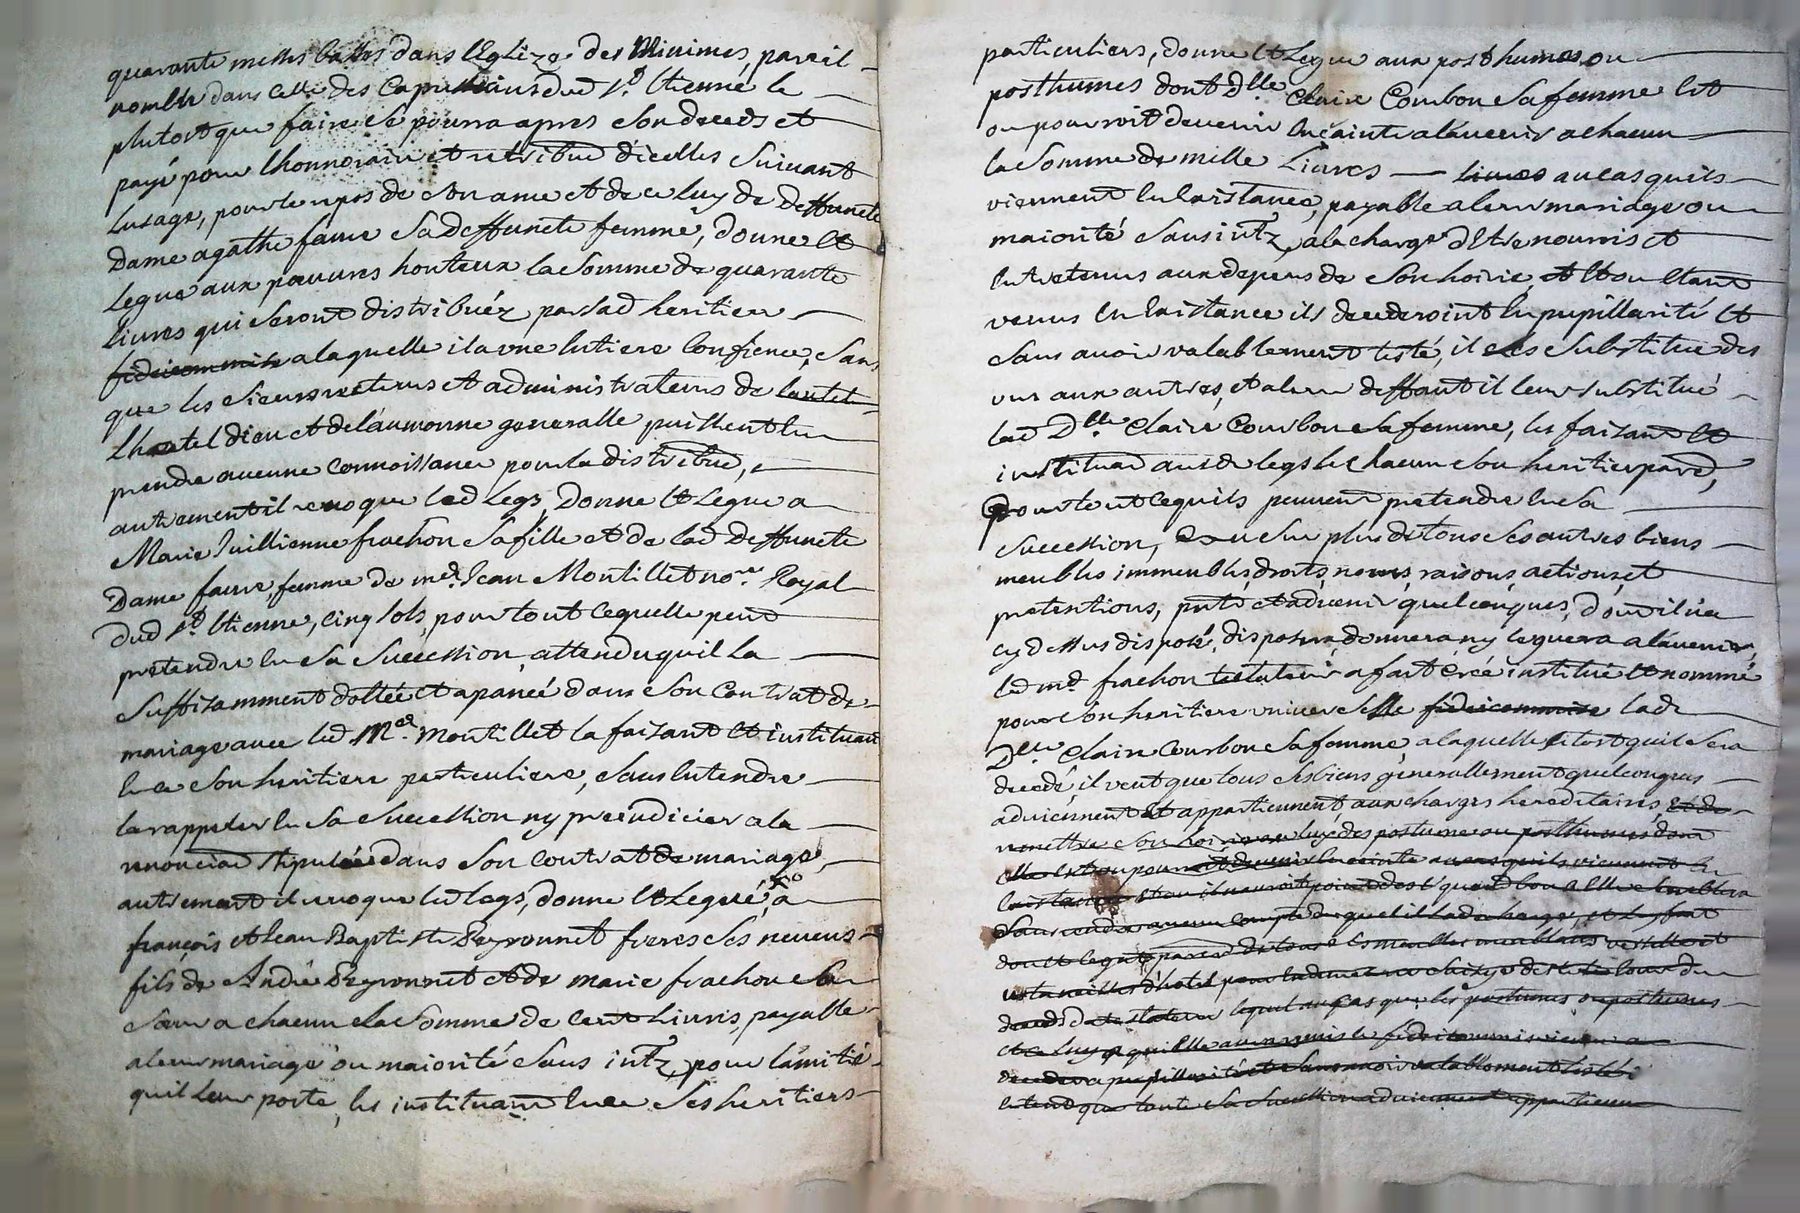 quarante messes basses dans l'Eglize des Minimes, pareil
nombre dans celle des Capucins dud St. Etienne le
plutost que faire se pourra apres son deceds et
payé pour l'honnoraire et retribuõn d'icelles suivant
lusage, pour le repos de son ame et de celuy de deffuncte
Dame agathe faure sa deffuncte femme, donne et
Legue aux pauvres honteux la somme de quarante
Livres qui seront distribuéz par sad heritiere
fideicommise a laquelle il a une entiere confience, sans
que les sieurs recteurs et administrateurs de
Lhostel dieu et de l'aumonne generalle puissent en
prendre aucune connoissance pour la distribuõn,
autrement il revoque led Legs, Donne et Legue a
Marie Juillienne frachon sa fille et de lad Deffuncte
Dame faure, femme de med. Jean Montillet nore. Royal
dud St. Etienne, cinq sols, pour tout ce quelle peut
pretendre en sa succession, attendu quil la
suffizamment dottée et apanée dans son contrat de
mariage avec led Med. Montillet la faizant et instituant
en ce son heritiere particuliere, sans entendre
la rappeler en sa succession ny prejudicier a la
renonciaõn stipulée dans son contrat de mariage,
autrement il revoque led legs, donne et Legue, a
françois et Jean Baptiste Peyronnet freres ses neveus
fils de André Peyronnet et de marie frachon sa
sœur a chacun la somme de cent Livres, payable
a leur mariage ou majorité sans intz, pour lamitié
quil leur porte, les instituant en ce ses heritiers
particuliers, donne et Legue aux posthumes ou
posthumes dont Dlle Claire Courbon sa femme est
ou pourroit devenir enceinte a lavenir a chacun
la somme de mille Livres — Livres au cas quils
viennent en laistance, payable a leur mariage ou
majorité sans intz, a la charge d'Etre nourris et
entretenus aux depens de son hoirie, et et ou etant
venus en laistance ils decederoint en pupillarité et
sans avoir valablement testé, il les substitue des
uns aux autres, et a leur deffaut il leur substitue
lad Dlle Claire Courbon sa femme, les faizant et
instituant aud legs chacun son heritier pared,
pour tout ce quils peuvent pretendre en sa
succession, Et au sur plus de tous ses autres biens
meubles immeubles, droits, noms, raisons, actions, et
pretentions, pnts et advenir quelconques, dont il n'a
cy dessus disposé, disposera, donnera ny leguera a lavenir,
led md. frachon testateur a fait créé institué et nommé
pour son heritiere universelle fideicommise lade
Dlle. Claire Courbon sa femme, a laquelle sitost quil sera
decedé, il veut que tous ses biens generallement quelconques
adviennent et appartiennent, aux charges hereditaires, et de
remettre son hoirie aux posthume ou posthumes dont
elle est ou pourroit devenir enceinte au cas quils viennent en
laistance
sans rendre aucun compte duquel il la decharge, et luy fait
don et legat de tous les meubles meublans
deceds lequel au cas que les postumes ou postumes
et ce luy a qui elle aura remis le fideicommis vienne a
deceder a pupillarité et sans avoir valablement testé il
entend que toute sa succession advienne et appartienne